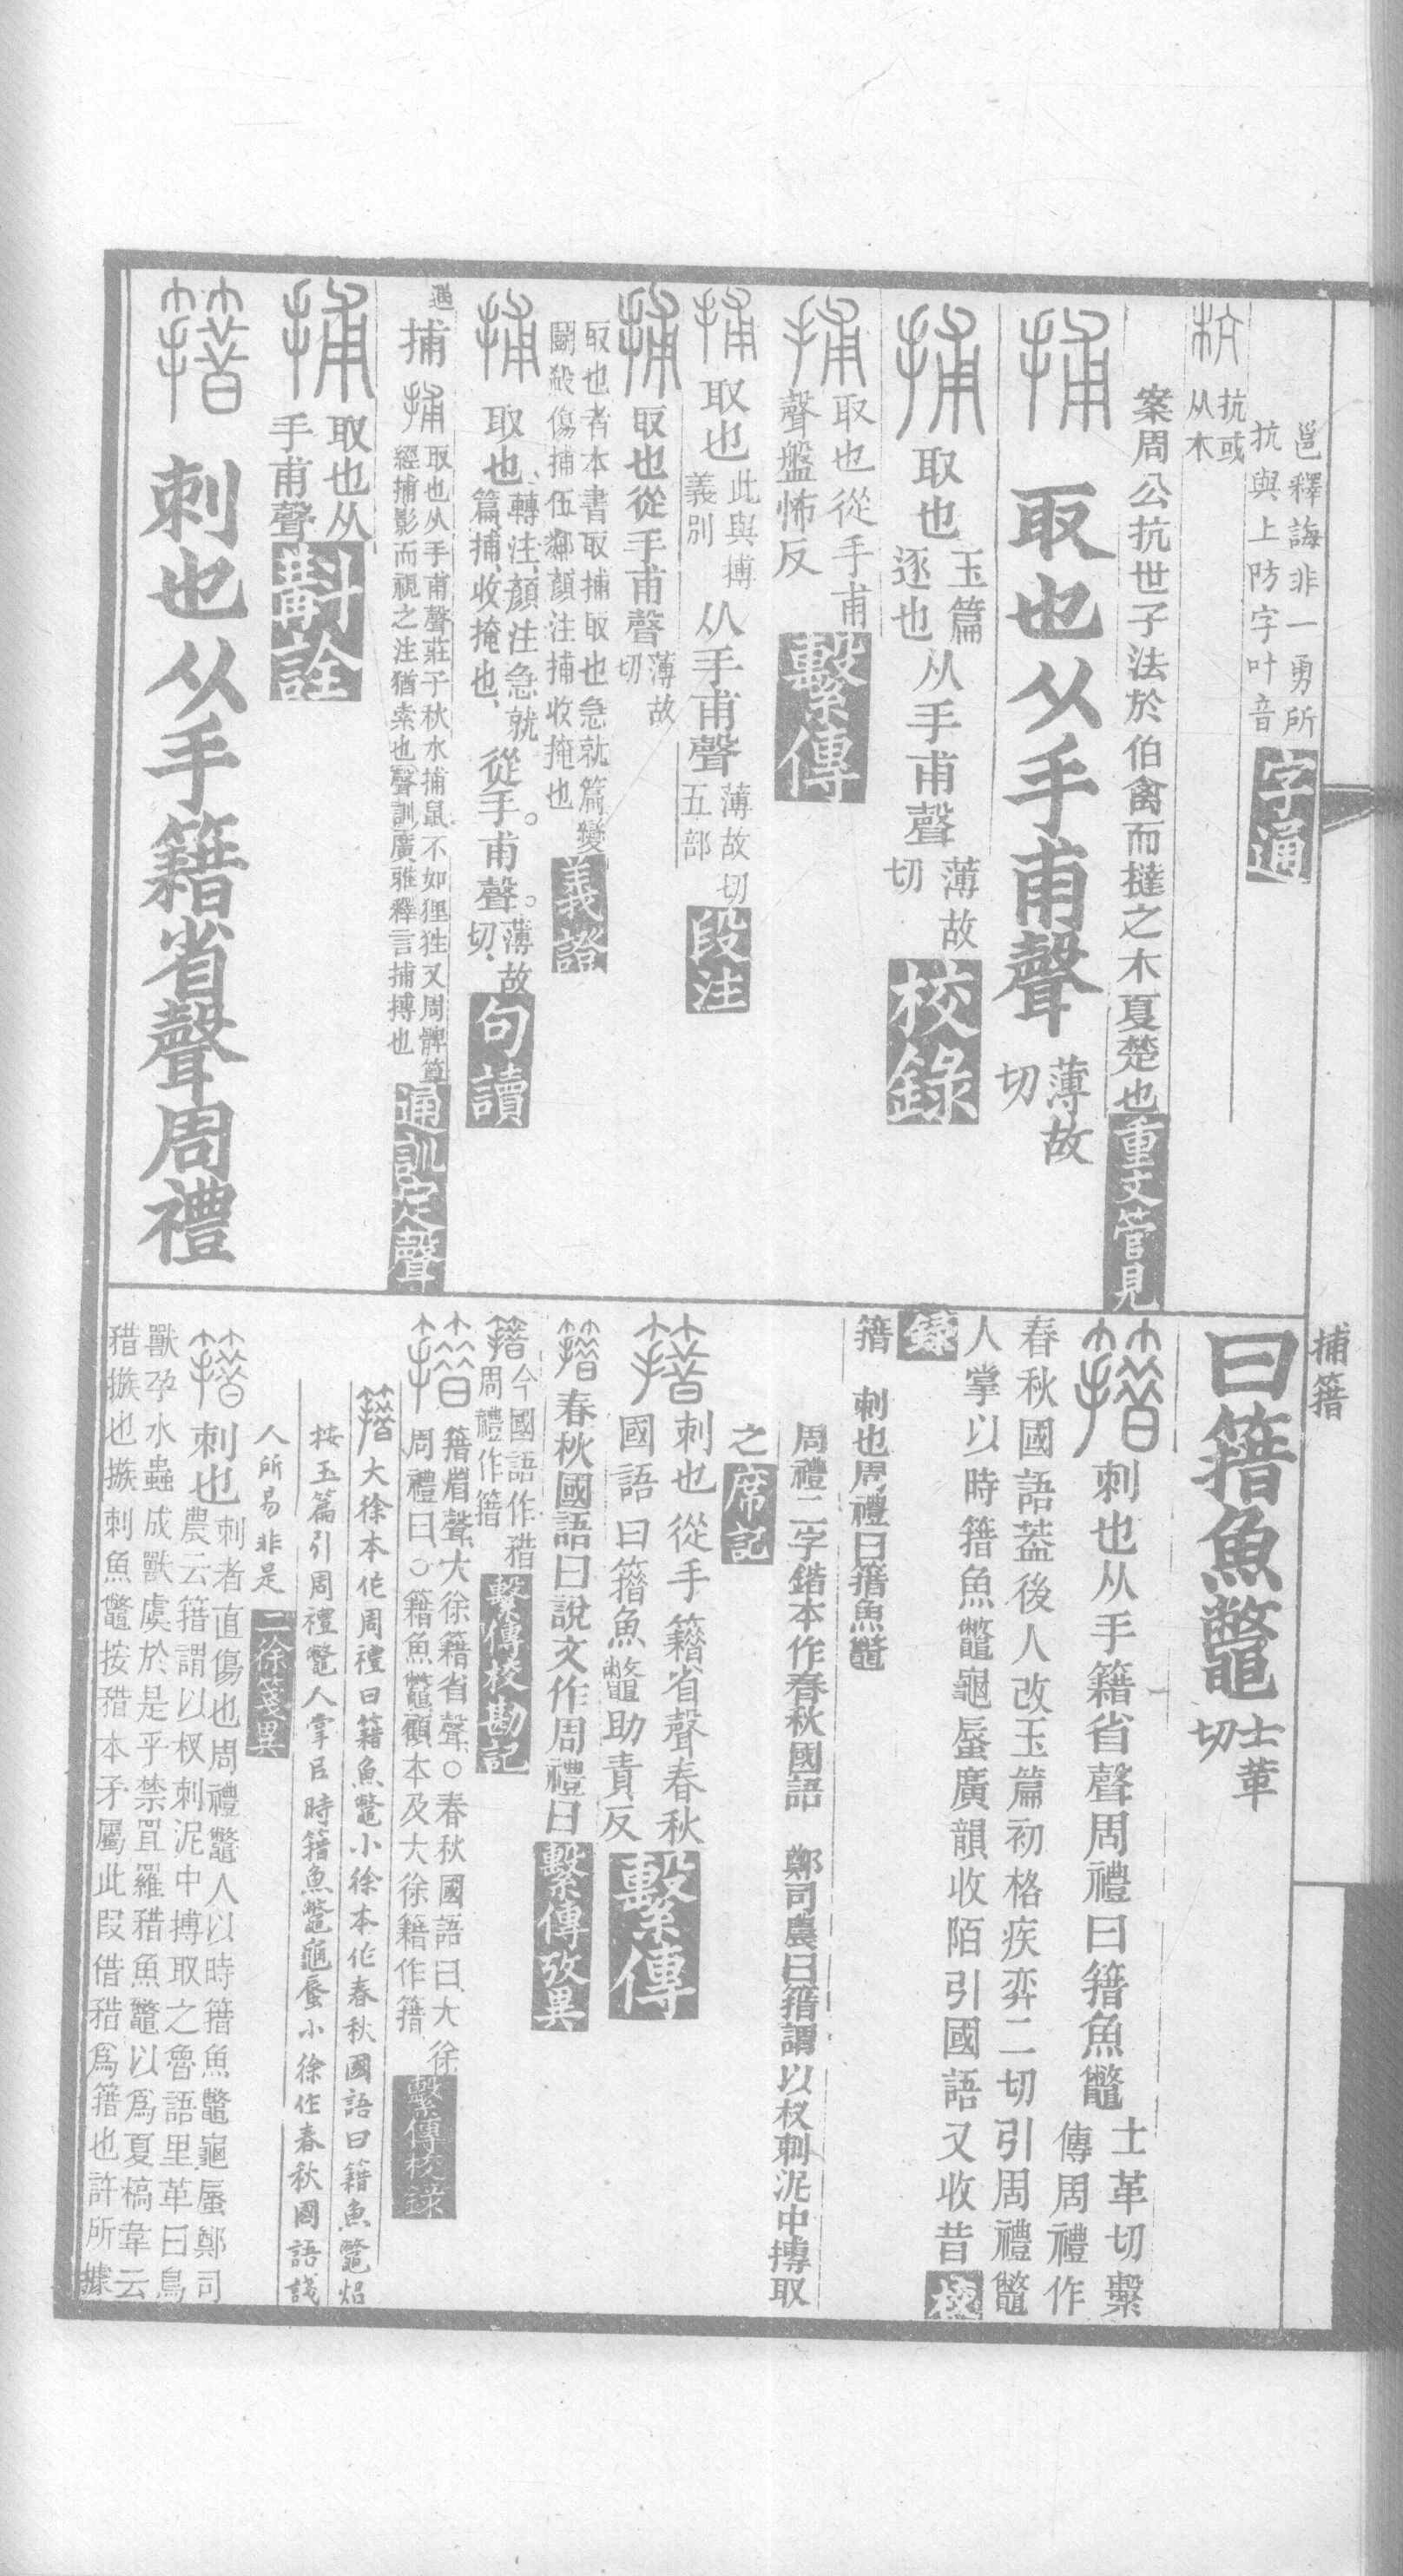 邕釋誨非一勇所
抗與上防字叶音
字通
抗或
从木
案周公抗世子法於伯禽而撻之木夏楚也
重文管見
捕
取也从手甫聲
薄故
切
捕
取也
玉篇
逐也
从手甫聲
薄故
切
校錄
捕
取也從手甫
聲盤怖反
繫傳
捕
取也
此與搏
義別
从手甫聲
薄故切
五部
段注
捕
取也從手甫聲
薄故
切
取也者本書取捕取也急就篇變
鬭殺傷捕伍鄰顏注捕收掩也
義證
捕
取也、
轉注、顏注急就
篇、捕、收掩也、
從手。甫聲。
薄故
切、
句讀
捕
捕
取也从手甫聲莊子秋水捕鼠不如狸狌又周髀算
經捕影而視之注猶索也聲訓廣雅釋言捕搏也
通訓定聲
捕
取也从
手甫聲
斠詮
籍
刺也从手籍省聲周禮
捕籍
曰籍魚鼈
士革
切
籍
刺也从手籍省聲周禮曰籍魚鼈
士革切繫
傳周禮作
春秋國語葢後人改玉篇初格疾弈二切引周禮鼈
人掌以時籍魚鼈龜蜃廣韻收陌引國語又收昔
校
錄
籍 刺也周禮曰籍魚鼈
周禮二字鍇本作春秋國語 鄭司農曰籍謂以杈刺泥中摶取
之
席記
籍
刺也從手籍省聲春秋
國語曰籍魚鼈助責反
繫傳
籍
春秋國語曰說文作周禮曰
繫傳攷異
籍
今國語作矠
周禮作籍
繫傳校勘記
籍
籍省聲、大徐籍省聲、○春秋國語曰、大徐
周禮曰、○籍魚鼈顧本及大徐籍作籍
繫傳校錄
籍
大徐本作周禮曰籍魚鼈小徐本作春秋國語曰籍魚鼈炤
按玉篇引周禮鼈人掌㠯時籍魚鼈龜蜃小徐作春秋國語諓
人所易非是
二徐箋異
籍
刺也
刺者直傷也周禮鼈人以時籍魚鼈龜蜃鄭司
農云籍謂以杈刺泥中摶取之魯語里革曰鳥
獸孕水蟲成獸虞於是乎禁罝羅矠魚鼈以爲夏槁韋云
矠㨖也㨖刺魚鼈按矠本矛屬此叚借矠爲籍也許所據